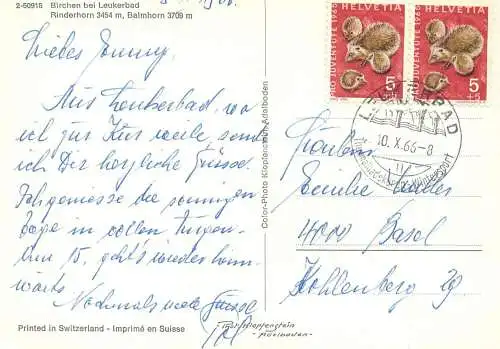 2-50918 Birchen bei Leukerbad
Rinderhorn 3454 m, Balmhorn 3709 m
Liebes Jonny.
Aus Leukerbad, wo
ich zur Kur weile, send
ich Dir herzliche Grüsse.
die sonnigen
Tage in vollen Zügen.
Am 15. geht's wieder heim-
wärts.
Nochmals viele Grüsse
Printed in Switzerland - Imprimé en Suisse
Color-Photo Klopfenstein, Adelboden
Photo Klopfenstein
Adelboden
PRO JUVENTUTE 1965
HELVETIA
5
+5
PRO JUVENTUTE 1965
HELVETIA
5
+5
LEUKERBAD
10.X.66-8
Fräulein
4000 Basel
Kohlenberg 29